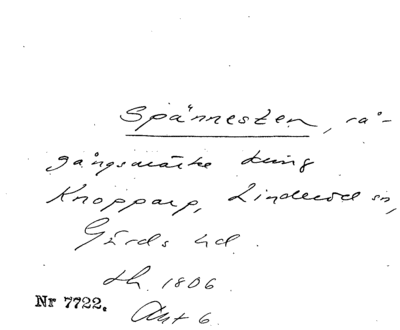 Spännesten, rå-
gångsmärke kring
Knopparp, Linderöd sn,
Gärds hd.
LH. 1806.
Nr 7722. Akt 6.